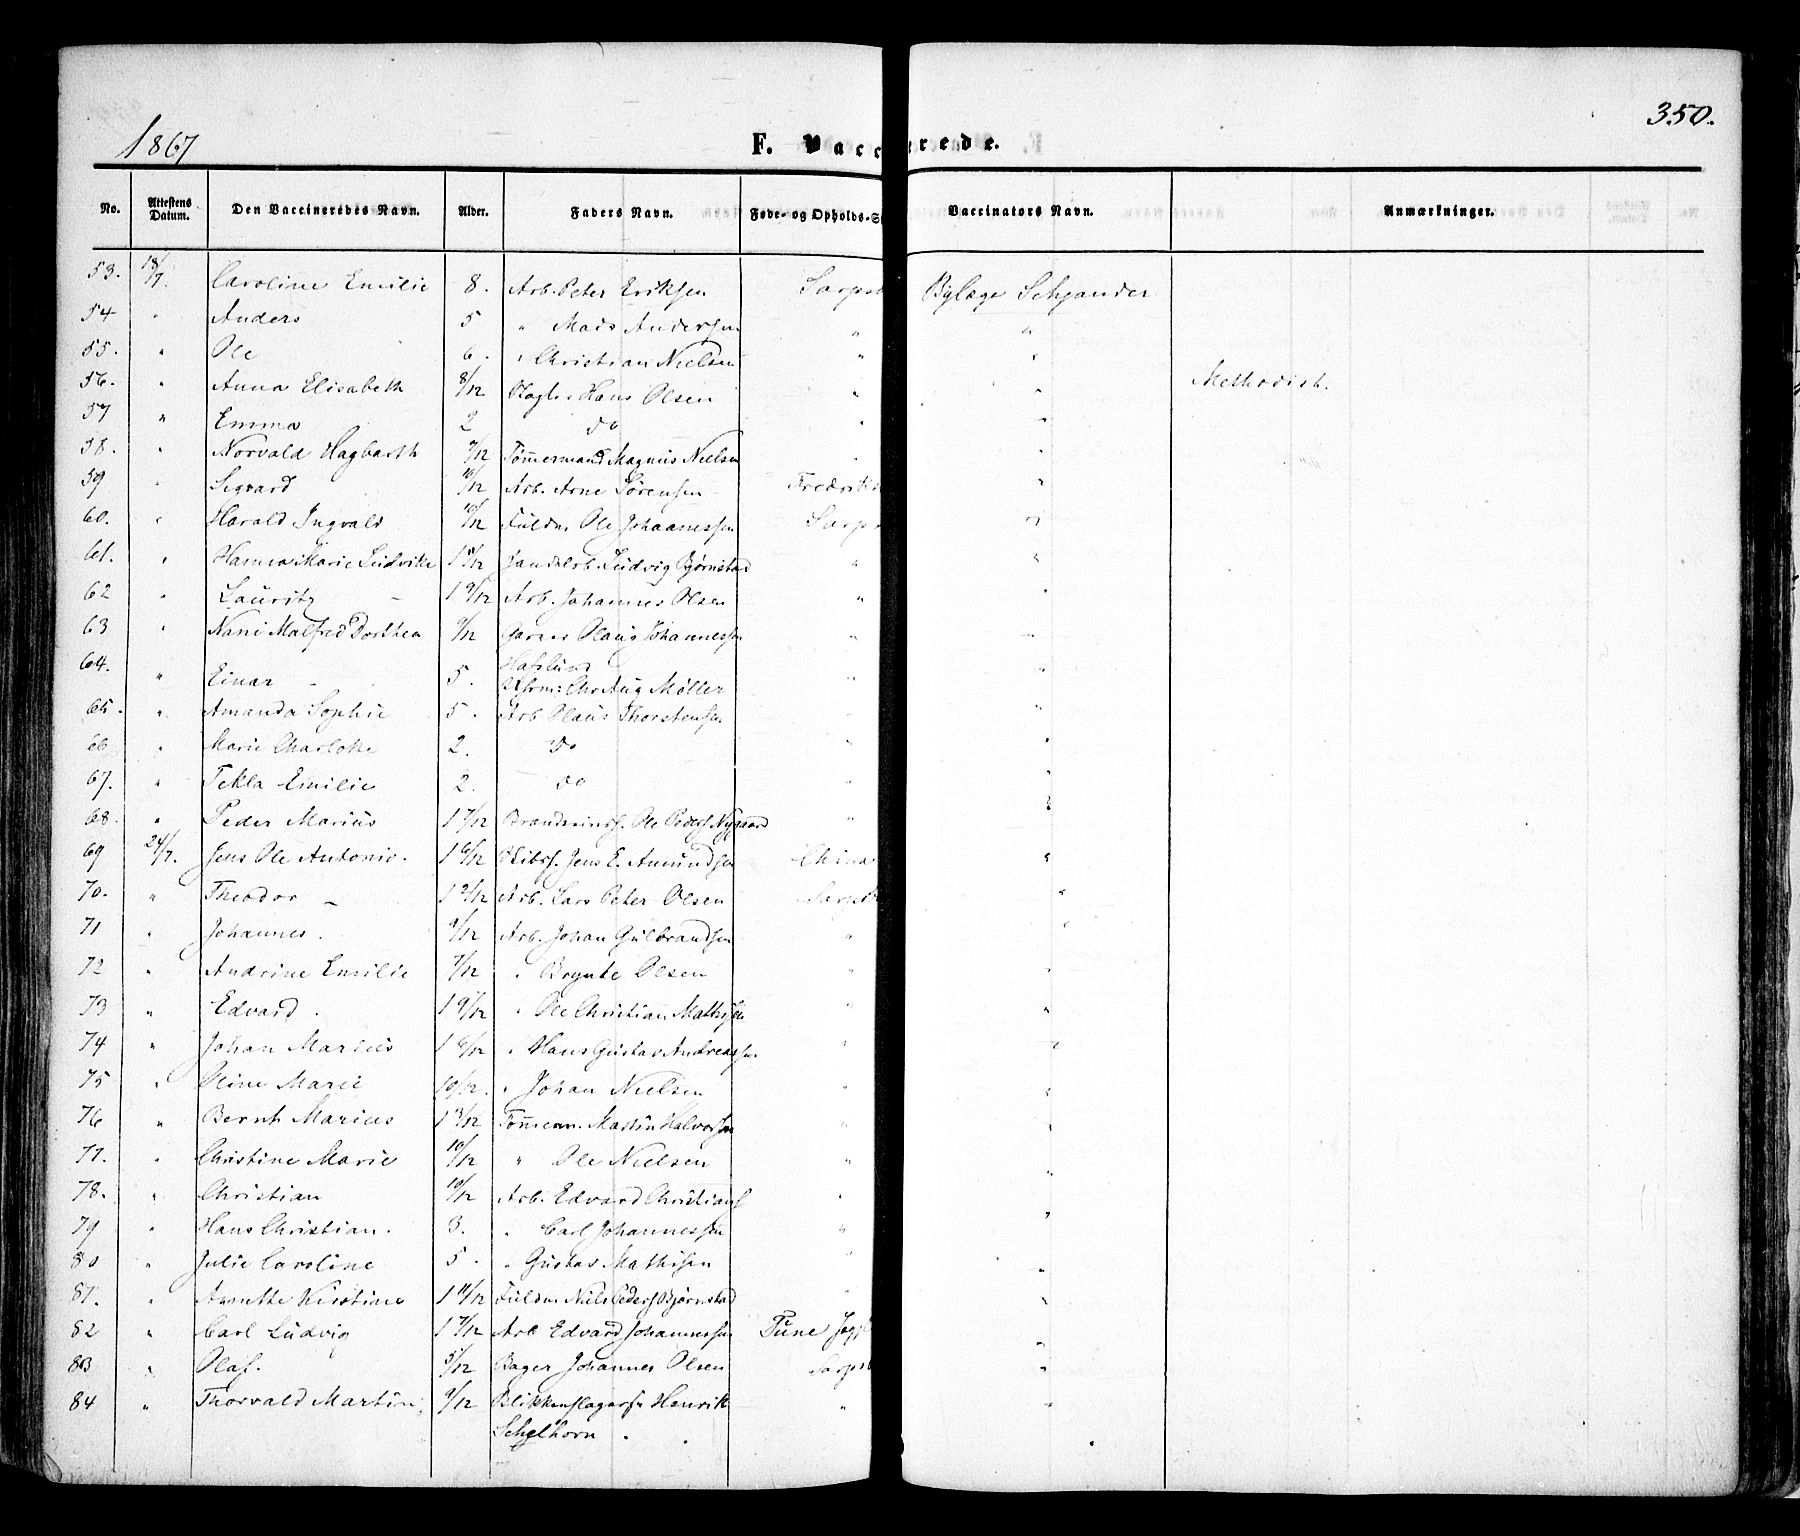 350.
1867
F. Vacc rede.
No. Attestens Datum. Den Vaccineredes Navn. Alder. Faders Navn. Føde- og Opholds-S Vaccinators Navn. Anmærkninger.
53. 18/7. Caroline Emilie 8. Arb. Peter Eriksen Sarpsb Bylæge Schjander
54 " Anders 5 " Mads Andersen " "
55. " Ole 6. " Christian Nielsen " "
56. " Anna Elisabeth 8/12 Hans Olsen " " Methodist.
57 " Emma 2 do " "
58. " Norvald Hagbarth 9/12 Tömmermand Magnus Nielsen " "
59 " Sigvard 10/12 Arb. Arne Sörensen - Fredrikk "
60. " Harald Ingvald 10/12 Fuldm Ole Johannessen Sarpsb "
61. " Hanna Marie Ludvike 1 Ludvig Bjørnstad " "
62 " Lauritz - 1 9/12 Arb. Johannes Olsen " "
63 " Nani Malfred Dorthea 9/12 Garver Olaus Johannessen " "
64. " Einar - 5. Hafslund Chr Aug Møller " "
65. " Amanda Sophie 5. Arb Olaus Thorstensen " "
66 " Marie Charlotte 2. do " "
67. " Tekla Emilie 2. do " "
68. " Peder Marius 1 7/12 Ole Peders Nygaard " "
69 24/7. Jens Ole Antonio. 1 6/12 Skibsf. Jens E. Amundsen China "
70. " Theodor - 1 2/12 Arb. Lars Peter Olsen Sarpsb "
71 " Johannes. 9/12 Arb. Johan Gulbrandsen " "
72 " Andrine Emilie 7/12 " Brynte Olsen " "
73 " Edvard. 1 9/12 " Ole Christian Mathisen " "
74 " Johan Marius 1 6/12 " Hans Gustav Andreassen " "
75 " Oline Marie 10/12. " Johan Nielsen " "
76 " Bernt Marius 1 Tömmerm. Martin Halvorsen " "
77. " Christine Marie 10/12 " Ole Nielsen " "
78. " Christian 10/12 Arb. Edvard Christians " "
79 " Hans Christian. 3. " Carl Johannessen " "
80 " Julie Caroline 5. " Gustav Mathisen " "
81. " Anette Kirstine 1 11/12 Fuldm Niels Peders Bjørnstad " "
82 " Carl Ludvig 1 7/12 Arb Edvard Johannessen Tune "
83 " Olaf. 5/12 Bager Johannes Olsen Sarpsb "
84 " Thorvald Martin 9/12 Blikkenslagersv Henrik Schelhorn. " "